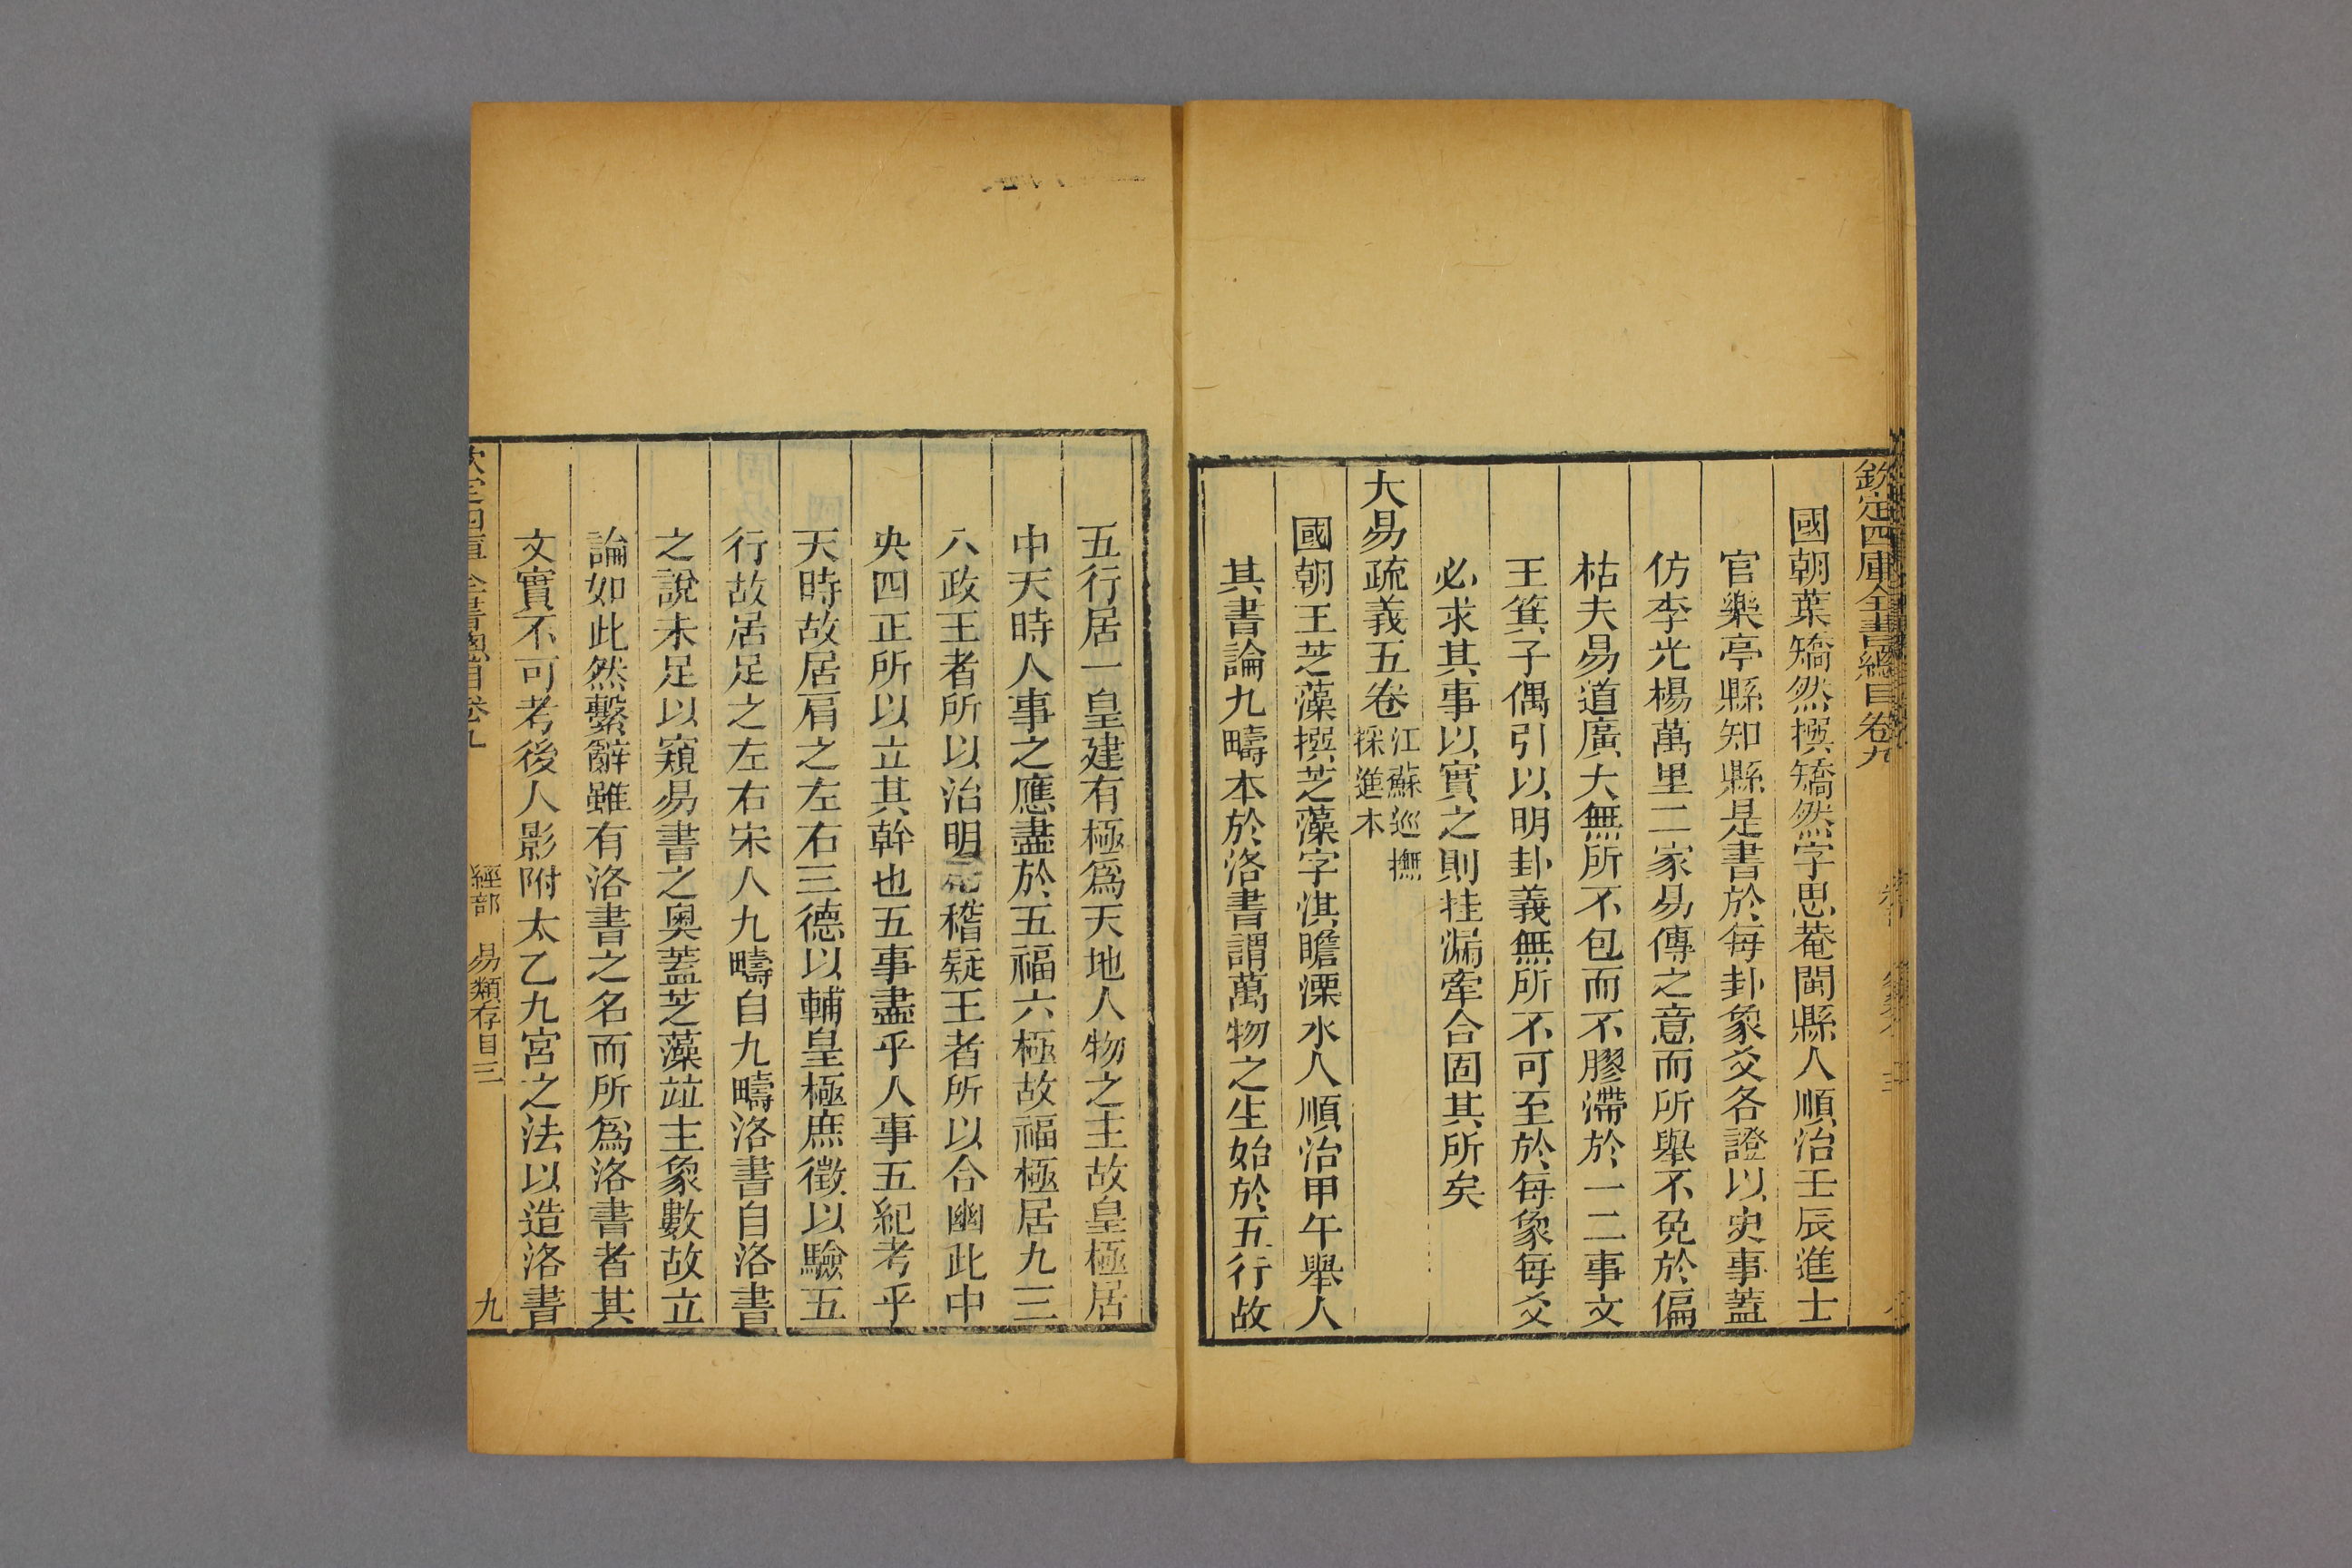 欽定四庫全書總目卷九
國朝葉矯然撰矯然字思菴閩縣人順治壬辰進士
官樂亭縣知縣是書於每卦象爻各證以史事蓋
仿李光楊萬里二家易傳之意而所舉不免於偏
枯夫易道廣大無所不包而不膠滯於一二事文
王箕子偶引以明卦義無所不可至於每象每爻
必求其事以實之則挂漏牽合固其所矣
大易疏義五卷
江蘇巡撫
採進本
國朝王芝藻撰芝藻字淇瞻溧水人順治甲午舉人
其書論九疇本於洛書謂萬物之生始於五行故
五行居一皇建有極爲天地人物之主故皇極居
中天時人事之應盡於五福六極故福極居九三
八政王者所以治明稽疑王者所以合幽此中
央四正所以立其幹也五事盡乎人事五紀考乎
天時故居肩之左右三德以輔皇極庶徵以驗五
行故居足之左右宋人九疇自九疇洛書自洛書
之說未足以窺易書之奥蓋芝藻竝主象數故立
論如此然繫辭雖有洛書之名而所爲洛書者其
文實不可考後人影附太乙九宮之法以造洛書
經部 易類存目三
九